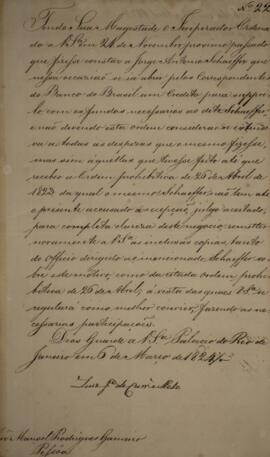 Nº 22
Tendo Sua Magestade o Imperador Ordena
do a V. Sª em 24 de Novembro proximo passado
que fizesse constar a Jorge Antonio Schaeffer que
nessa occasião se ia abrir pelos Correspondentes
do Banco do Brasil um Credito para suppri
lo com os fundos necessarios ao dito Schaeffer,
e não devendo esta ordem considerar-se extensi
va a todas as despezas que o mesmo fizesse,
mas sim áquellas que tivesse feito até que
receber a Ordem prohibitiva de 26 de Abril de
1823 da qual o mesmo Schaeffer não tem até
o presente accusado a recepção, julgo acertado,
para completa clareza deste negocio, remetter
novamente a V. Sª as inclusas copias, tanto
do officio dirigido ao mencionado Schaeffer so
bre este motivo, como da citada ordem prohi
bitiva de 26 de Abril, á vista das quaes V. Sª se
regulará como melhor convier, fazendo as ne
cessarias participações.
Deos Guarde a V. Sª Palacio do Rio de
Janeiro em 6 de Março de 1824
Luiz Jº de Carvº e Mello
Manoel Rodrigues Gameiro
Pessoa